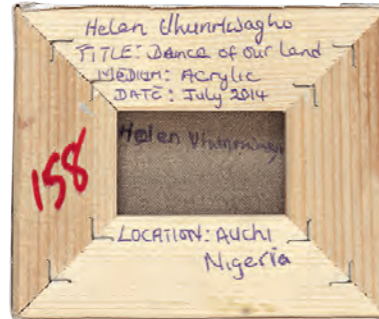 Helen Uhunmwagho
TITLE: Dance of our Land
MEDIUM: Acrylic
DATE: July 2014
158
Helen Uhunmwagho
LOCATION: AUCHI
Nigeria